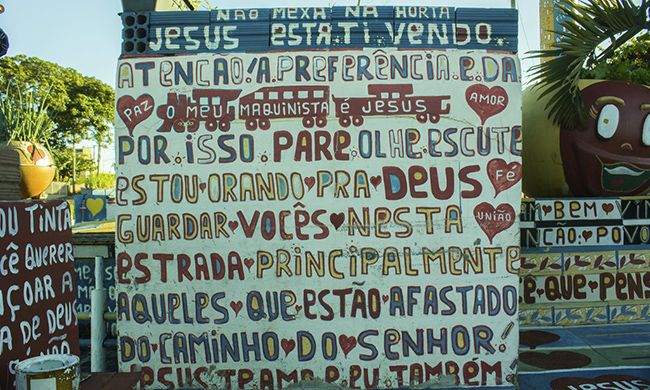 NÃO MEXA NA HORTA
JESUS ESTA TI VENDO.
ATENCÃO! A PREFERÊNCIA E DA
PAZ
O MEU MAQUINISTA É JESUS
AMOR
POR ISSO PARE OLHE ESCUTE
ESTOU ORANDO PRA DEUS
FÉ
GUARDAR VOCÊS NESTA
UNIÃO
ESTRADA PRINCIPALMENTE
AQUELES QUE ESTÃO AFASTADO
DO CAMINHO DO SENHOR!
JESUS TE AMA E EU TAMBÉM
OU TINTA
CÊ QUERER
ÇOAR A
A DE DEUS
M BEM
NÇÃO. POVO
E QUE PENS